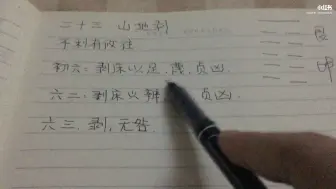 二十三 山地剥
不利有攸往
初六:剥床以足,蔑,贞凶.
六二:剥床以辨 贞凶.
六三:剥,无咎.
小红书